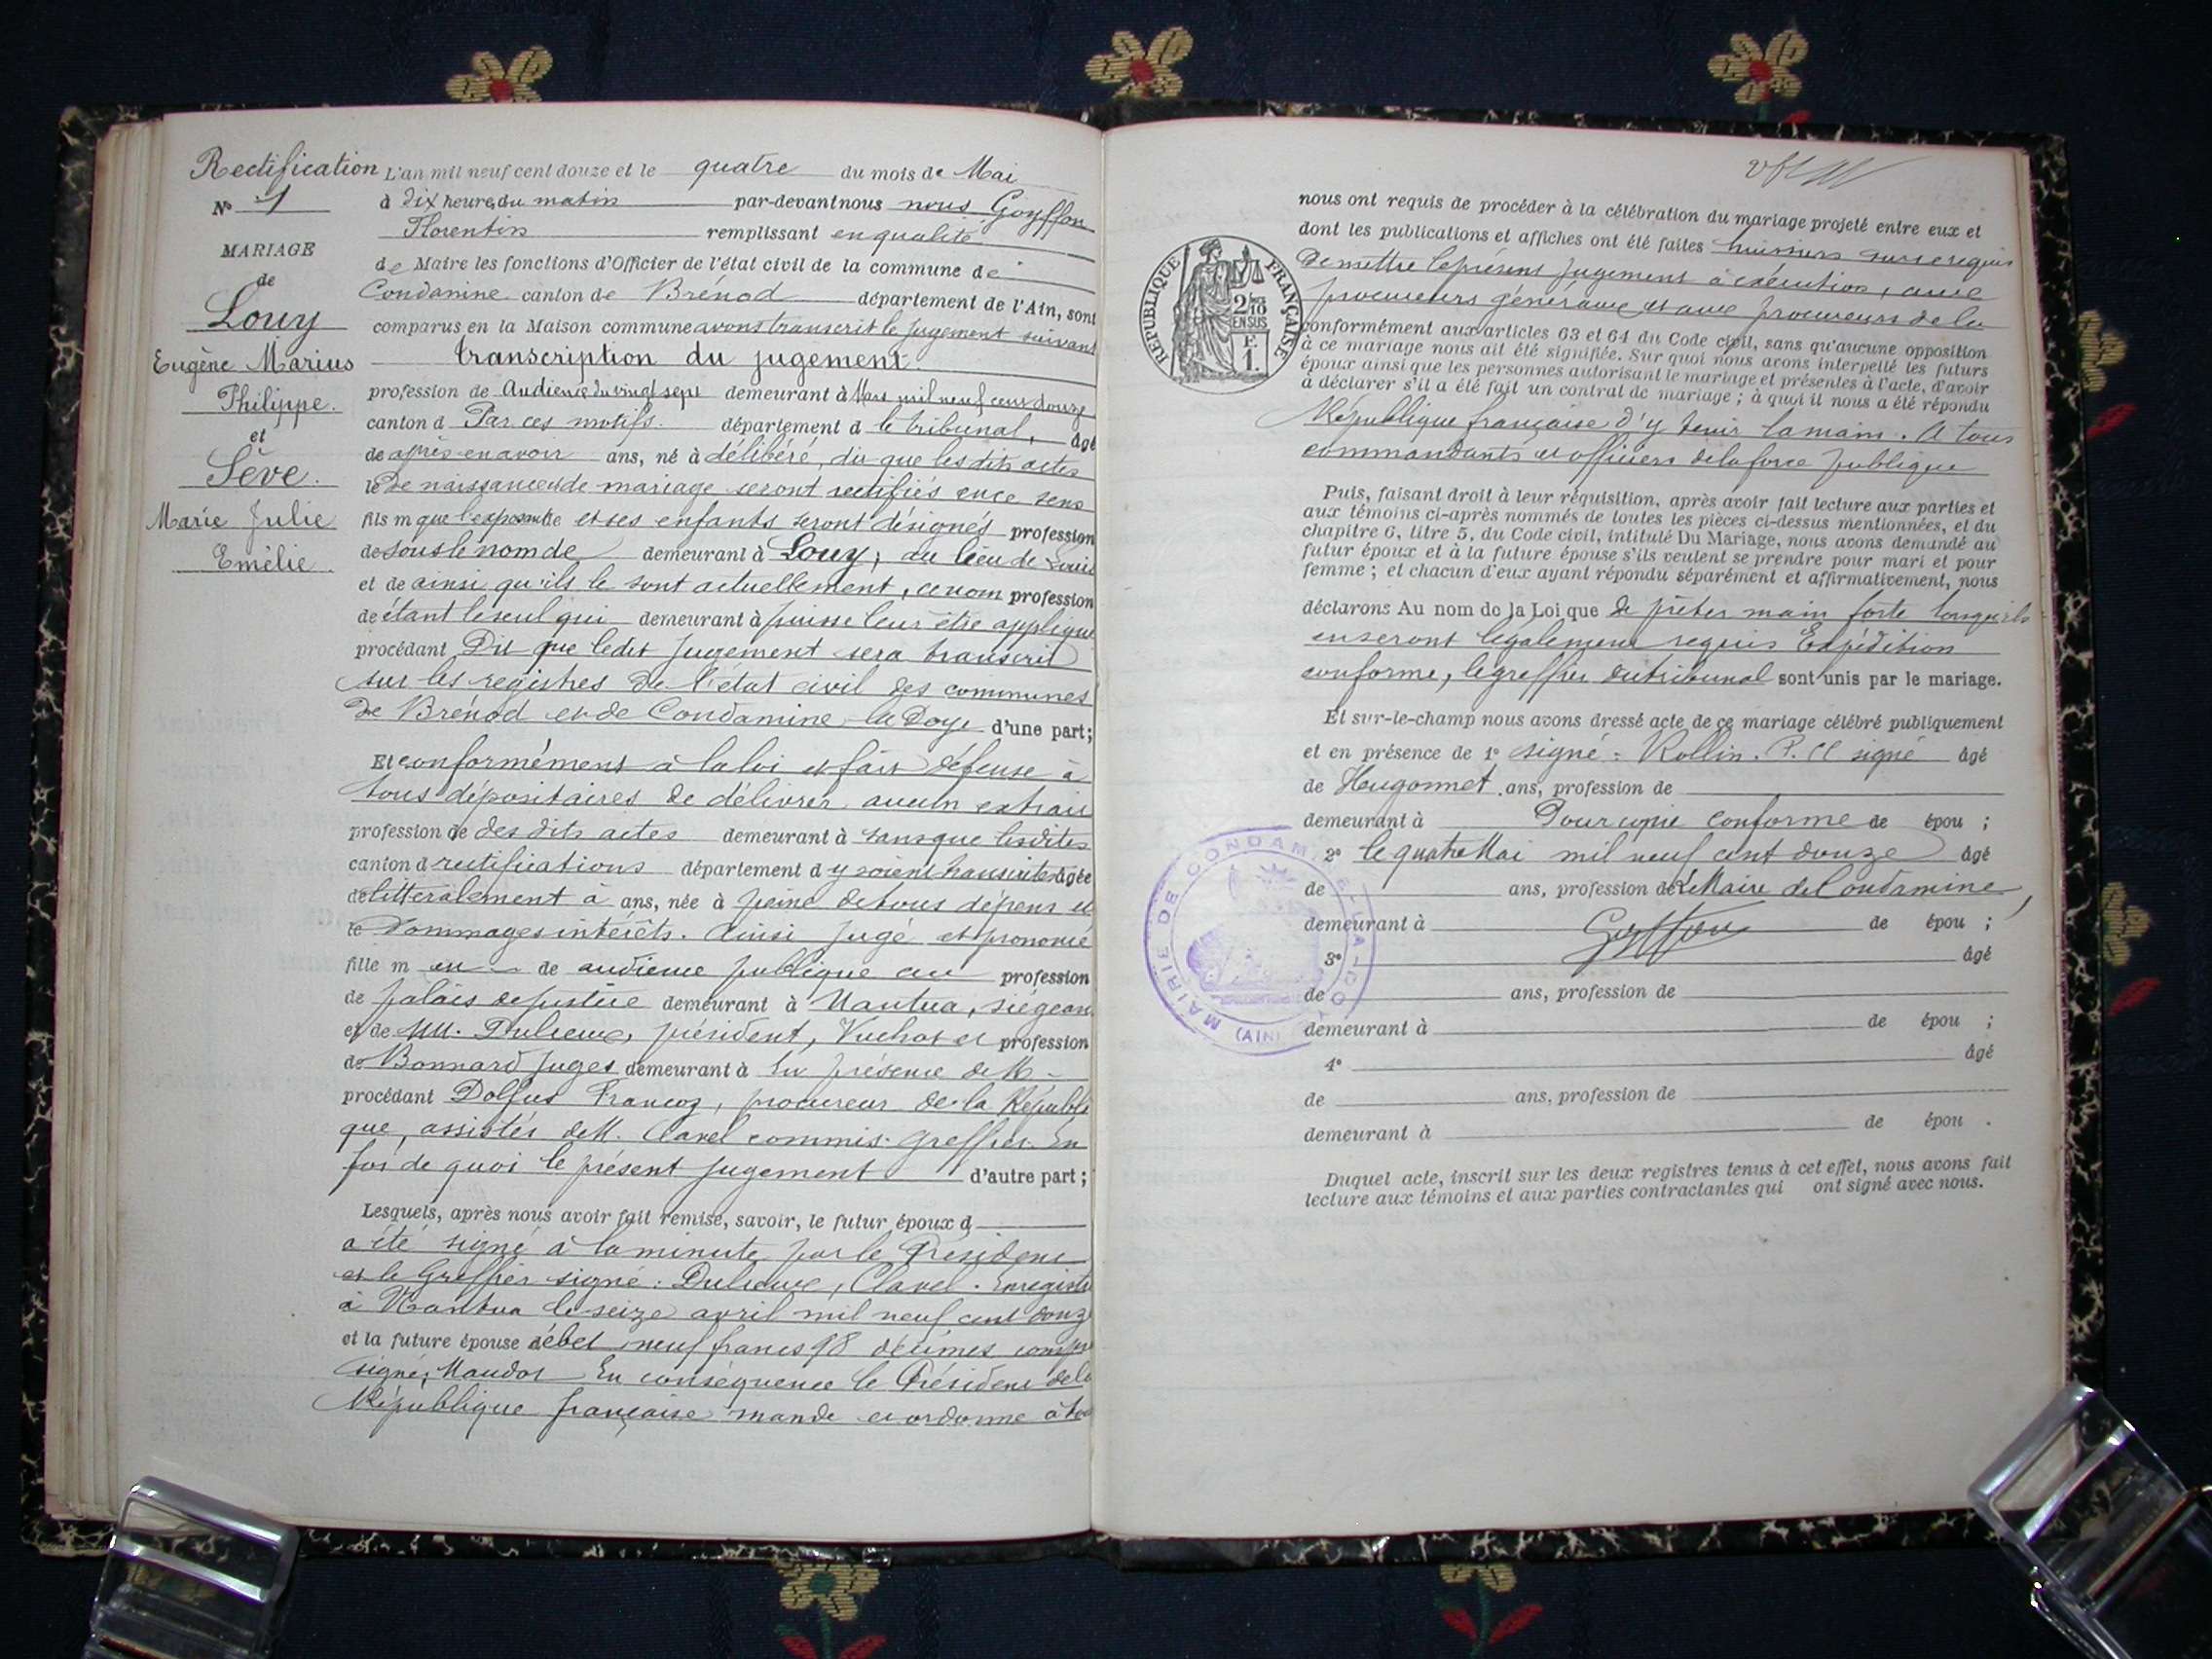 Rectification
N° 1
MARIAGE
de
Louy
Eugène Marius
Philippe.
et
Sève.
Marie Julie
Emélie.
L'an mil neuf cent douze et le quatre du mois de Mai
à dix heures du matin par-devant nous nous Goyffon
Florentin remplissant en qualité
de Maire les fonctions d'Officier de l'état civil de la commune de
Condamine canton de Brénod département de l'Ain, sont
comparus en la Maison commune avons transcrit le jugement suivant
transcription du jugement.
profession de Audience du vingt sept demeurant à Mars mil neuf cent douze
canton d Par ces motifs. département d le tribunal, âgé
de après en avoir ans, né à délibéré, dit que les dits actes
le de naissance et de mariage seront rectifiés en ce sens
fils m que l'exposante et ses enfants seront désignés profession
de sous le nom de demeurant à Louy, au lieu de Louis
et de ainsi qu'ils le sont actuellement, ce nom profession
de étant le seul qui demeurant à puisse leur être appliqué
procédant Dit que ledit jugement sera transcrit
sur les registres de l'état civil des communes
de Brénod et de Condamine la Doye d'une part;
Et conformément à la loi et fait défense à
tous dépositaires de délivrer aucun extrait
profession de des dits actes demeurant à sans que lesdites
canton d rectifications département d y soient transcrites âgée
de littéralement à ans, née à peine de tous dépens et
le dommages intérêts. Ainsi jugé et prononcé
fille m en de audience publique au profession
de palais de justice demeurant à Nantua, siégeant
et de MM. Dulieux, président, Vuchot et profession
de Bonnard juges demeurant à En présence de M
procédant Dolfus Francoz, procureur de la Républi
que, assistés de M. Clavel commis. greffier. En
foi de quoi le présent jugement d'autre part;
Lesquels, après nous avoir fait remise, savoir, le futur époux d
a été signé à la minute par le Président
et le Greffier signé: Dulieux, Clavel. Enregistré
à Nantua le seize avril mil neuf cent douze
et la future épouse débet neuf francs 98 décimes compris
signé, Maudot En conséquence le Président de la
République française mande et ordonne à tous
nous ont requis de procéder à la célébration du mariage projeté entre eux et
dont les publications et affiches ont été faites huissiers sur ce requis
de mettre le présent jugement à exécution, aux
procureurs généraux et aux procureurs de la
conformément aux articles 63 et 64 du Code civil, sans qu'aucune opposition
à ce mariage nous ait été signifiée. Sur quoi nous avons interpellé les futurs
époux ainsi que les personnes autorisant le mariage et présentes à l'acte, d'avoir
à déclarer s'il a été fait un contrat de mariage; à quoi il nous a été répondu
République française d'y tenir la main. A tous
commandants et officiers de la force publique
Puis, faisant droit à leur réquisition, après avoir fait lecture aux parties et
aux témoins ci-après nommés de toutes les pièces ci-dessus mentionnées, et du
chapitre 6, titre 5, du Code civil, intitulé Du Mariage, nous avons demandé au
futur époux et à la future épouse s'ils veulent se prendre pour mari et pour
femme; et chacun d'eux ayant répondu séparément et affirmativement, nous
déclarons Au nom de la Loi que de prêter main forte lorsqu'ils
en seront légalement requis Expédition
conforme, le greffier du tribunal sont unis par le mariage.
Et sur-le-champ nous avons dressé acte de ce mariage célébré publiquement
et en présence de 1° signé: Rollin. P. Cl signé âgé
de Hugonnet. ans, profession de
demeurant à Pour copie conforme de épou ;
2° le quatre Mai mil neuf cent douze âgé
de ans, profession de Le Maire de Condamine,
demeurant à Goyffon de épou ;
3° âgé
de ans, profession de
demeurant à de épou ;
4° âgé
de ans, profession de
demeurant à de épou .
Duquel acte, inscrit sur les deux registres tenus à cet effet, nous avons fait
lecture aux témoins et aux parties contractantes qui ont signé avec nous.
RÉPUBLIQUE FRANÇAISE
2/10
EN SUS
F.
1.
MAIRIE DE CONDAMINE-LA-DOYE
(AIN)